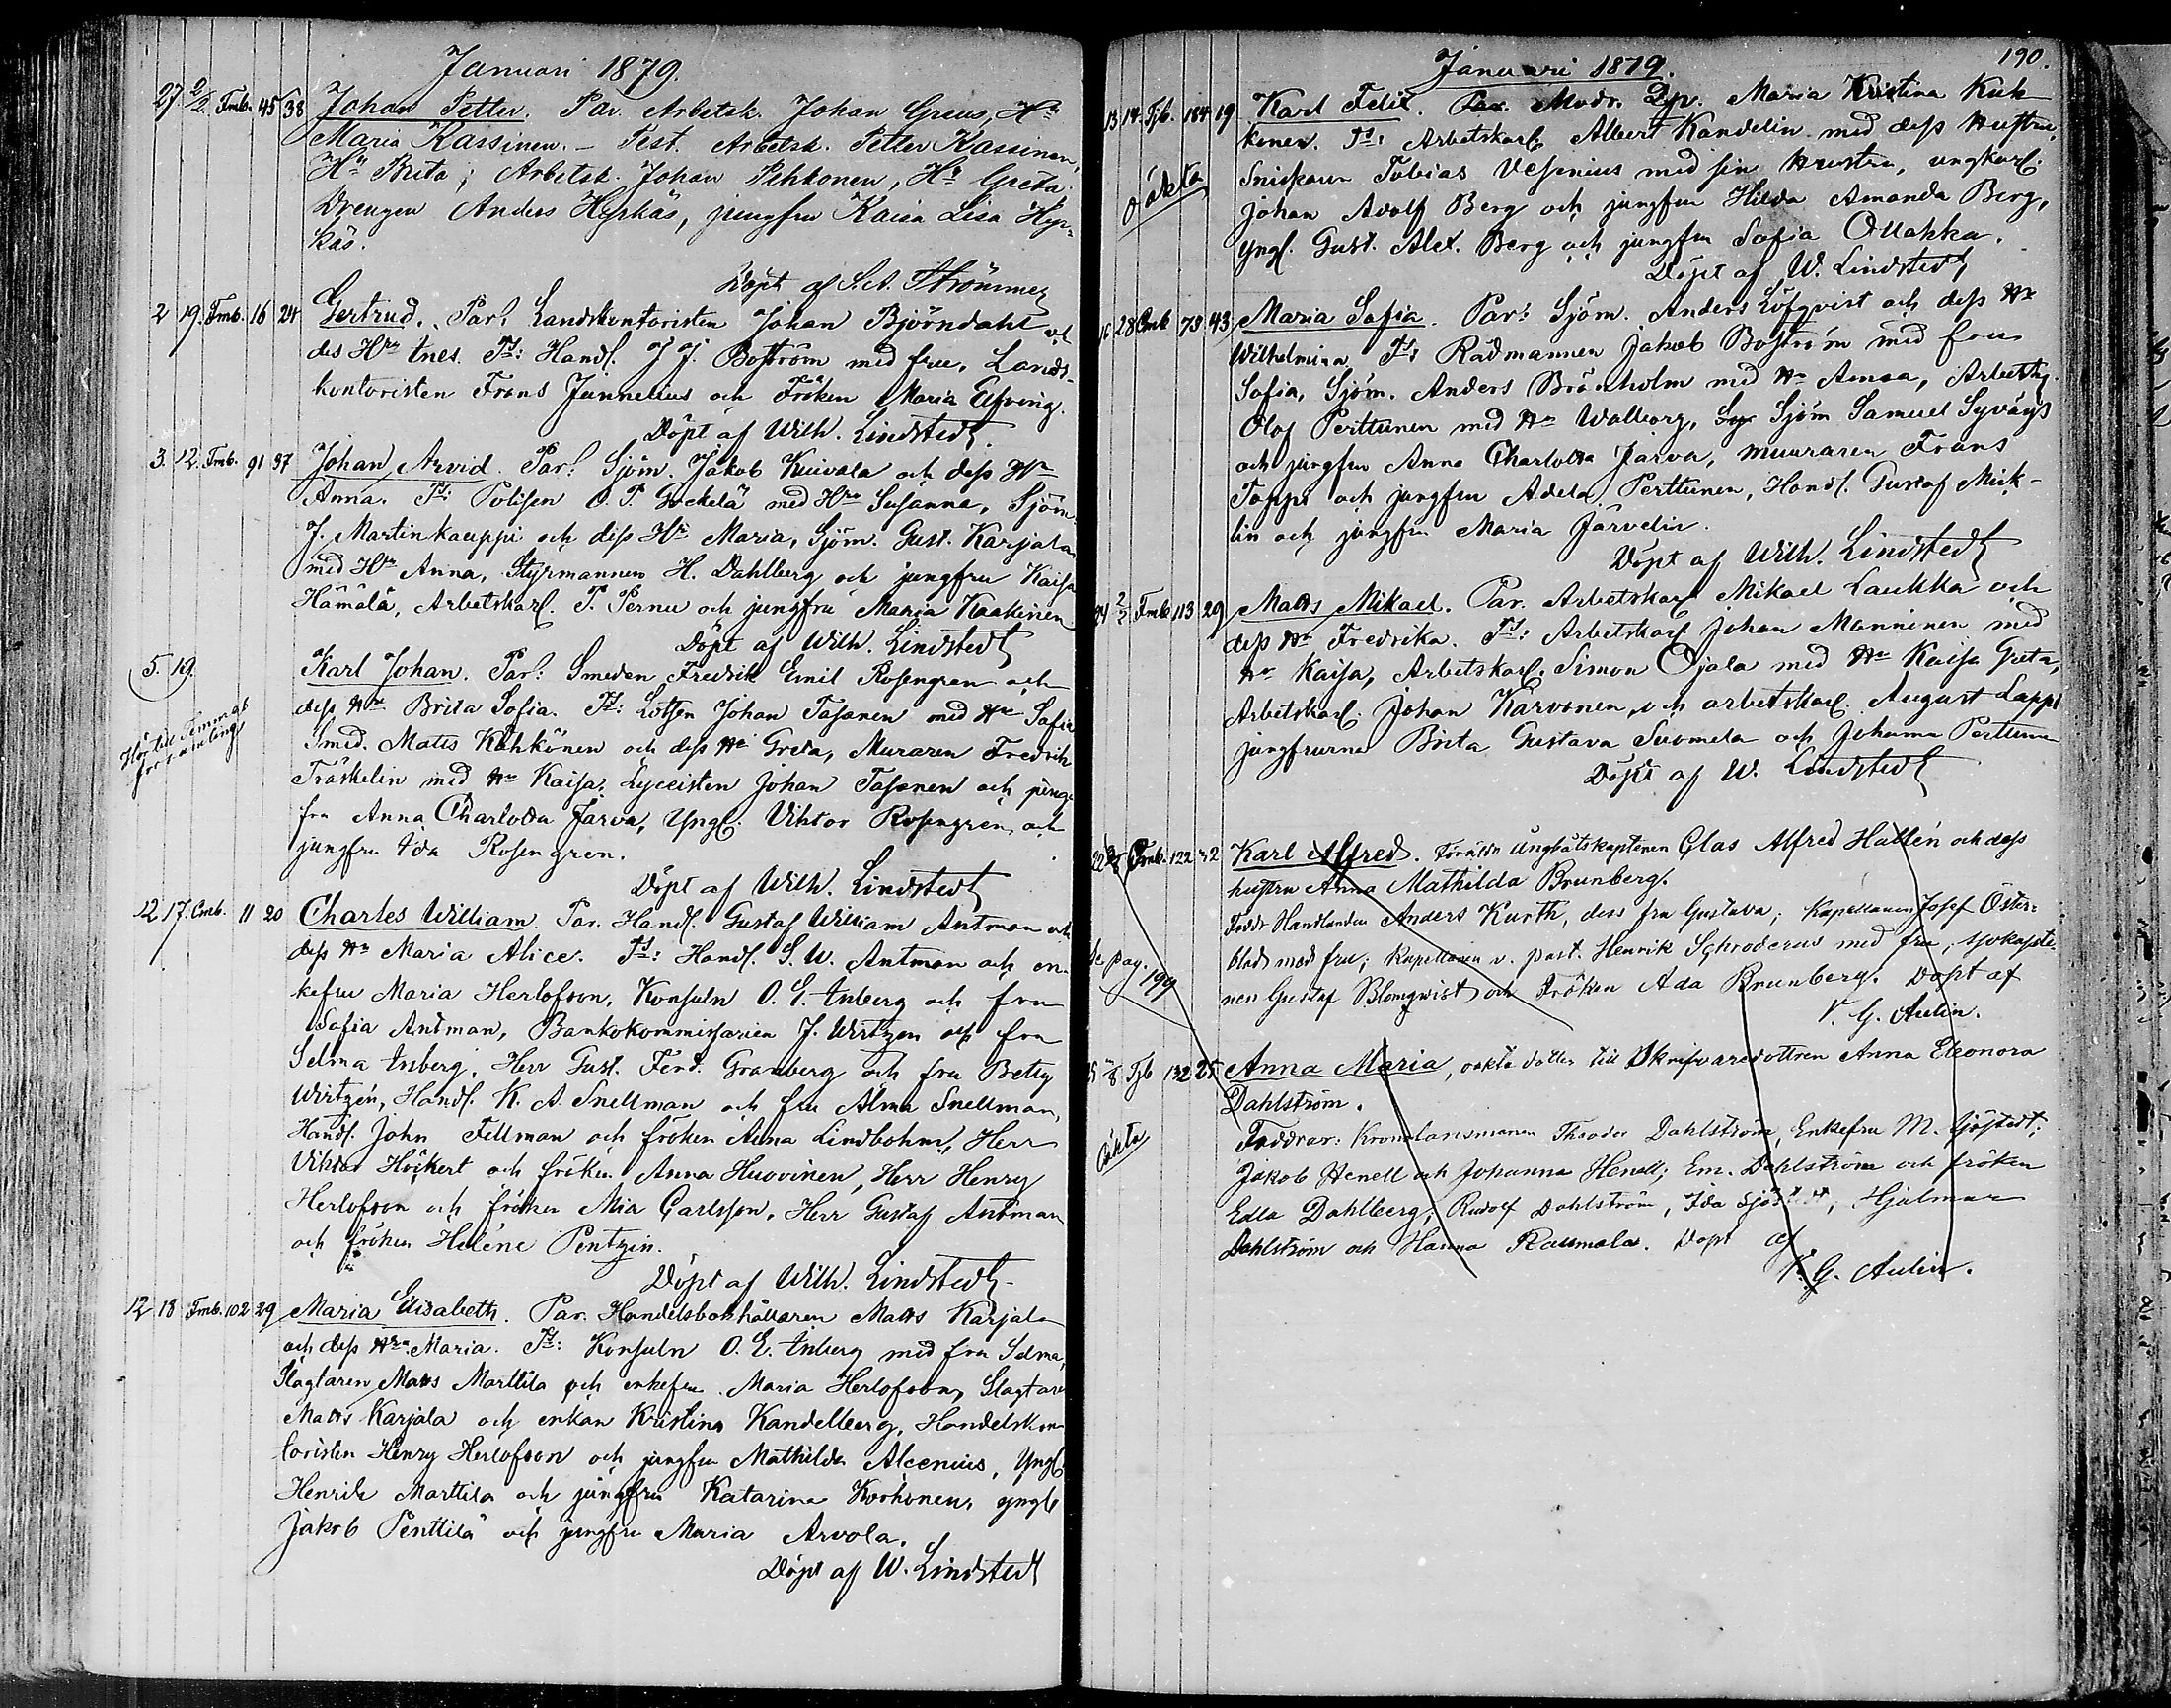 Januari 1879.
27 2/2 Fmb. 45 38 Johan Petter. Par. Arbetsk. Johan Greus, Hu
Maria Kassinen. – Test. Arbetsk. Petter Kassinen,
Hu Brita; Arbetsk. Johan Pehkonen, Hu Greta.
Drengen Anders Hyrkäs, jungfru Kaisa Lisa Hyr-
käs.
Döpt af S.A. Strömmer
2 19. Fmb. 16 24 Gertrud. Par: Landskontoristen Johan Björndahl och
des Hru Ines. Ts: Handl. J J. Boström med fru, Lands-
kontoristen Frans Junnelius och Fröken Maria Elfving.
Döpt af Wilh. Lindstedt.
3. 12. Fmb. 91 37 Johan Arvid. Par: Sjöm. Jakob Kuivala och dess Hu
Anna. Ts: Polisen O. P. med Hru Susanna, Sjöm.
J. Martinkauppi och dess Hu Maria, Sjöm. Gust. Karjala
med Hu Anna, Styrmannen H. Dahlberg och jungfru Kaisa
Hämälä, Arbetskarl. P. Pernu och jungfru Maria Kaakinen
Döpt af Wilh. Lindstedt
5. 19. Karl Johan. Par: Smeden Fredrik Emil Rosengren och
Hör till Temmes
församling
dess Hru Brita Sofia. Ts: Lotsen Johan Tasanen med Hu Sofia
Smed. Matts Kähkönen och dess Hu Greta, Muraren Fredrik
Träskelin med Hu Kaisa, Lyceisten Johan Tasanen och jung-
fru Anna Charlotta Jarva, Yngl. Viktor Rosengren och
jungfru Ida Rosengren.
Döpt af Wilh. Lindstedt
12 17. Cmb. 11 20 Charles William. Par. Handl. Gustaf William Antman och
dess Hu Maria Alice. Ts: Handl. S. W. Antman och en-
kefru Maria Herlofson, Konsuln O. E. Inberg och fru
Sofia Antman, Bankokommissarien J. Wirtzen och fru
Selma Inberg, Herr Gust. Ferd. Granberg och fru Betty
Wirtzén, Handl. K. A. Snellman och fru Alma Snellman,
Handl. John Fellman och fröken Anna Lindbohm, Herr
Viktor Höckert och fröken Anna Huovinen, Herr Henry
Herlofson och fröken Mia Carlsson, Herr Gustaf Antman
och fröken Heléne Pentzin.
Döpt af Wilh. Lindstedt
12 18 Fmb. 102 29 Maria Elisabeth. Par. Handelsbokhållaren Matts Karjala
och dess Hru Maria. Ts: Konsuln O. E. Inberg med fru Selma,
Slagtaren Matts Marttila och enkefru Maria Herlofson, Slagtaren
Matts Karjala och enkan Kristina Kandelberg, Handelskon-
toristen Henry Herlofson och jungfru Mathilda Alcenius, Yngl.
Henrik Marttila och jungfru Katarina Korhonen, yngl.
Jakob Penttilä och jungfru Maria Arvola.
Döpt af W. Lindstedt
Januari 1879. 190.
13 14. Fjb. 184 19 Karl Felix. Par. Modr. Dpr. Maria Kristina Kuk-
konen. Ts: Arbetskarl. Albert Kandelin med dess Hustru,
oäkta
Snickaren Tobias Vesenius med sin Hustru, ungkarl.
Johan Adolf Berg och jungfru Hilda Amanda Berg,
yngl. Gust. Alex. Berg och jungfru Sofia Ollakka.
Döpt af W. Lindstedt
16 28 Cmb 73 43 Maria Sofia. Par: Sjöm. Anders Löfqvist och dess Hu
Wilhelmina. Ts: Rådmannen Jakob Boström med fru
Sofia, Sjöm. Anders Brännholm med Hu Amoa, Arbetsk.
Olof Perttunen med Hu Walborg, Sjöm Samuel Syväys
och jungfru Anna Charlotta Jarva, Muuraren Frans
Toppi och jungfru Adela Perttunen, Handl. Gustaf Mick-
lin och jungfru Maria Järvelin.
Döpt af Wilh. Lindstedt
24 2/2 Fmb 113 29 Matts Mikael. Par. Arbetskarl Mikael Laukka och
dess Hu Fredrika. Ts: Arbetskarl Johan Manninen med
Hu Kaisa, Arbetskarl. Simon Ojala med Hu Kaisa Greta,
Arbetskarl. Johan Karvonen och arbetskarl. August Lappi
jungfrurna Brita Gustava Suomela och Johanna Perttunen
Döpt af W. Lindstedt
22 Fmb. 122 32 Karl Alfred. Föräldr Ångbåtskaptenen Clas Alfred Hallén och dess
hustru Anna Mathilda Brunberg.
Faddr Handlanden Anders Kurth, dess fru Gustava; Kapellanen Josef Öster-
se pag. 199
blad med fru; Kapellanen v. past. Henrik Schroderus med fru, sjökapte-
nen Gustaf Blomqwist och Fröken Ada Brunberg. Döpt af
V. G. Aulin.
25 /8 Fjb 132 25 Anna Maria, oäkta dotter till Skrifvaredottren Anna Eleonora
Dahlström.
oäkta
Faddrar: Kronolänsmanen Theodor Dahlström, Enkefru M. Sjöstedt;
Jakob Henell och Johanna Henell; Em. Dahlström och fröken
Edla Dahlberg; Rudolf Dahlström, Ida Sjöstedt, Hjalmar
Dahlström och Hanna Raumala. Döpt af
V. G. Aulin.